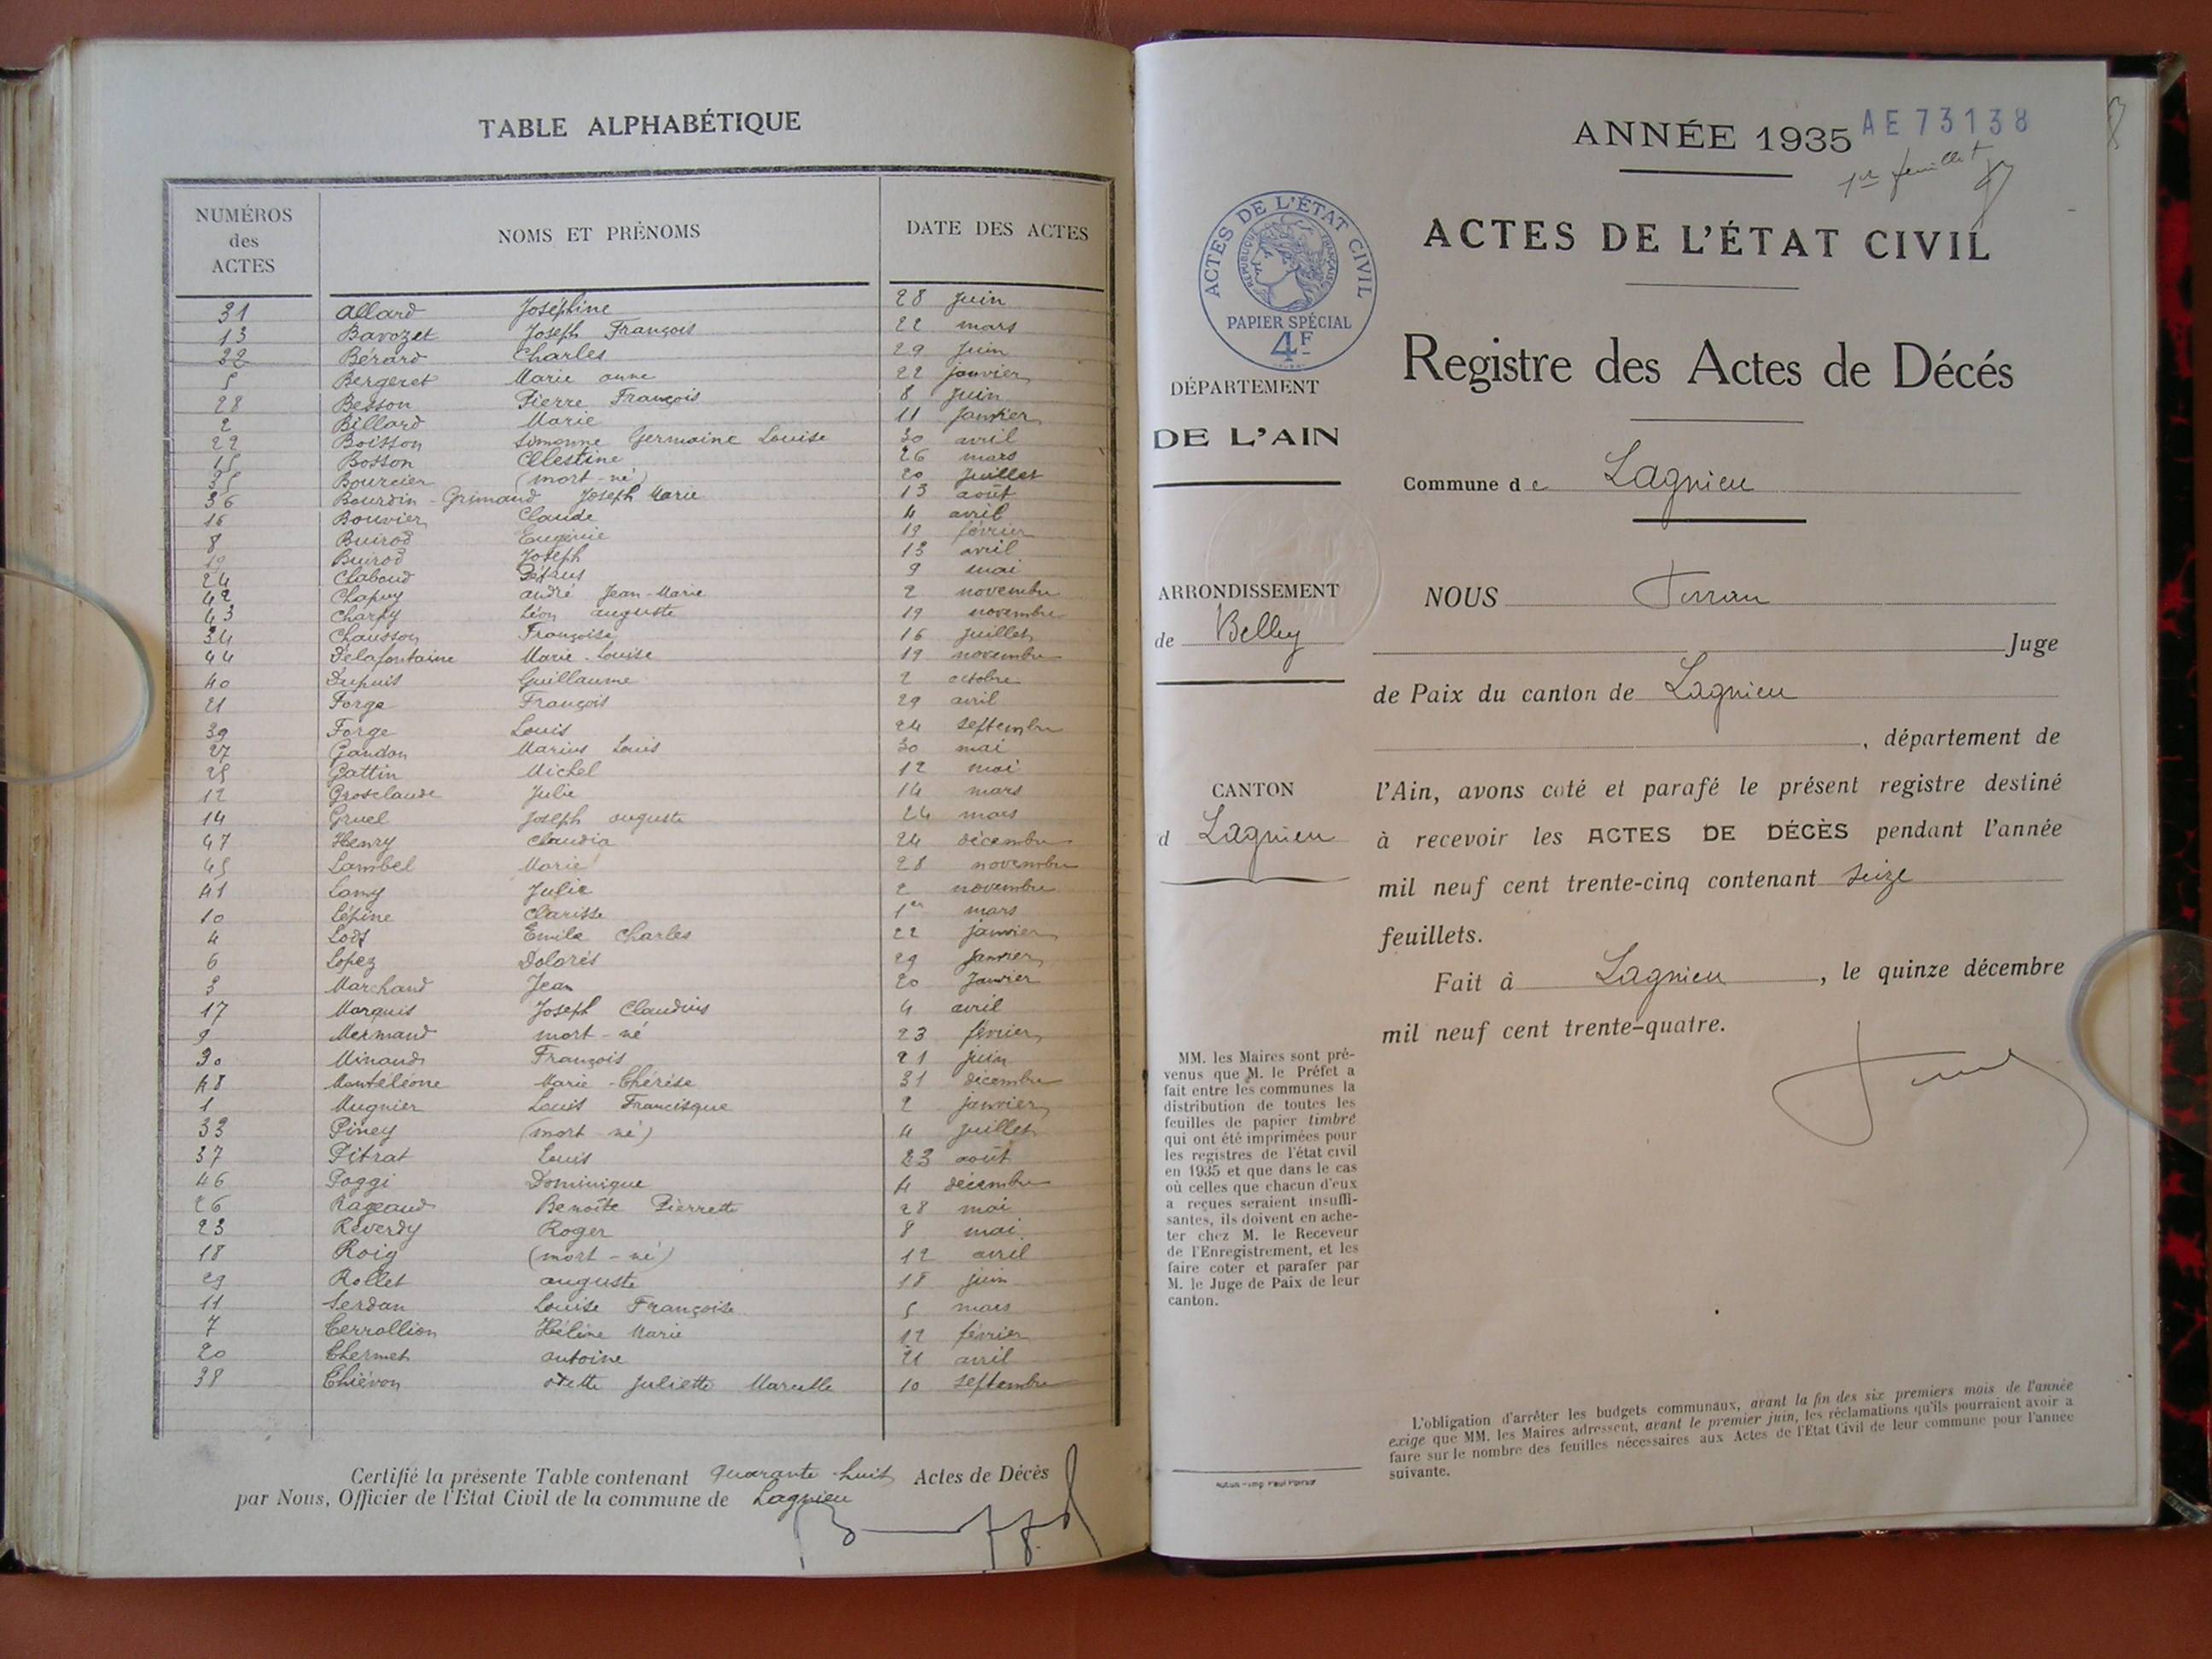 TABLE ALPHABÉTIQUE
NUMÉROS des ACTES NOMS ET PRÉNOMS DATE DES ACTES
31 Allard Joséphine 28 juin
13 Bavozet Joseph François 22 mars
32 Bérard Charles 29 juin
5 Bergeret Marie anne 22 janvier
28 Besson Pierre François 8 juin
2 Billard Marie 11 janvier
22 Boisson Simonne Germaine Louise 30 avril
15 Bosson Célestine 26 mars
35 Bourcier (mort-né) 20 juillet
36 Bourdin-Grimaud Joseph Marie 13 août
16 Bouvier Claude 4 avril
8 Buirod Eugénie 19 février
19 Buirod Joseph 13 avril
24 Chaboud Pétrus 9 mai
42 Chapuy andré Jean-Marie 2 novembre
43 Charpy Léon auguste 19 novembre
34 Chausson Françoise 16 juillet
44 Delafontaine Marie-Louise 19 novembre
40 Dupuis Guillaume 2 octobre
21 Forge François 29 avril
39 Forge Louis 24 septembre
27 Gandon Marius Louis 30 mai
25 Gattin Michel 12 mai
12 Grosclaude Julie 14 mars
14 Gruel Joseph auguste 24 mars
47 Henry Claudia 24 décembre
45 Lambel Marie 28 novembre
41 Lamy Julie 2 novembre
10 Lépine Clarisse 1er mars
4 Lods Emile Charles 22 janvier
6 Lopez Dolorès 29 janvier
3 Marchand Jean 20 janvier
17 Marquis Joseph Claudius 4 avril
9 Mermand mort-né 23 février
30 Minaud François 21 juin
48 Montéléone Marie-Thérèse 31 décembre
1 Mugnier Louis Francisque 2 janvier
33 Piney (mort-né) 4 juillet
37 Pitrat Louis 23 août
46 Poggi Dominique 4 décembre
26 Rageaud Benoîte Pierrette 28 mai
23 Reverdy Roger 8 mai
18 Roig (mort-né) 12 avril
29 Rollet auguste 18 juin
11 Serdan Louise Françoise 5 mars
7 Terrollion Hélène Marie 12 février
20 Thermet antoine 21 avril
38 Thiévon Odette Juliette Marcelle 10 septembre
Certifié la présente Table contenant quarante-huit Actes de Décès
par Nous, Officier de l'Etat Civil de la commune de Lagnieu
ANNÉE 1935 AE73138
1er feuillet
ACTES DE L'ÉTAT CIVIL
RÉPUBLIQUE FRANÇAISE
PAPIER SPÉCIAL
4F
ACTES DE L'ÉTAT CIVIL
Registre des Actes de Décés
DÉPARTEMENT
DE L'AIN
Commune de Lagnieu
ARRONDISSEMENT
de Belley
NOUS Ferran
Juge
de Paix du canton de Lagnieu
, département de
CANTON
d Lagnieu
l'Ain, avons coté et parafé le présent registre destiné
à recevoir les ACTES DE DÉCÈS pendant l'année
mil neuf cent trente-cinq contenant seize
feuillets.
Fait à Lagnieu, le quinze décembre
mil neuf cent trente-quatre.
MM. les Maires sont pré-
venus que M. le Préfet a
fait entre les communes la
distribution de toutes les
feuilles de papier timbré
qui ont été imprimées pour
les registres de l'état civil
en 1935 et que dans le cas
où celles que chacun d'eux
a reçues seraient insuffi-
santes, ils doivent en ache-
ter chez M. le Receveur
de l'Enregistrement, et les
faire coter et parafer par
M. le Juge de Paix de leur
canton.
L'obligation d'arrêter les budgets communaux, avant la fin des six premiers mois de l'année
exige que MM. les Maires adressent, avant le premier juin, les réclamations qu'ils pourraient avoir a
faire sur le nombre des feuilles nécessaires aux Actes de l'Etat Civil de leur commune pour l'année
suivante.